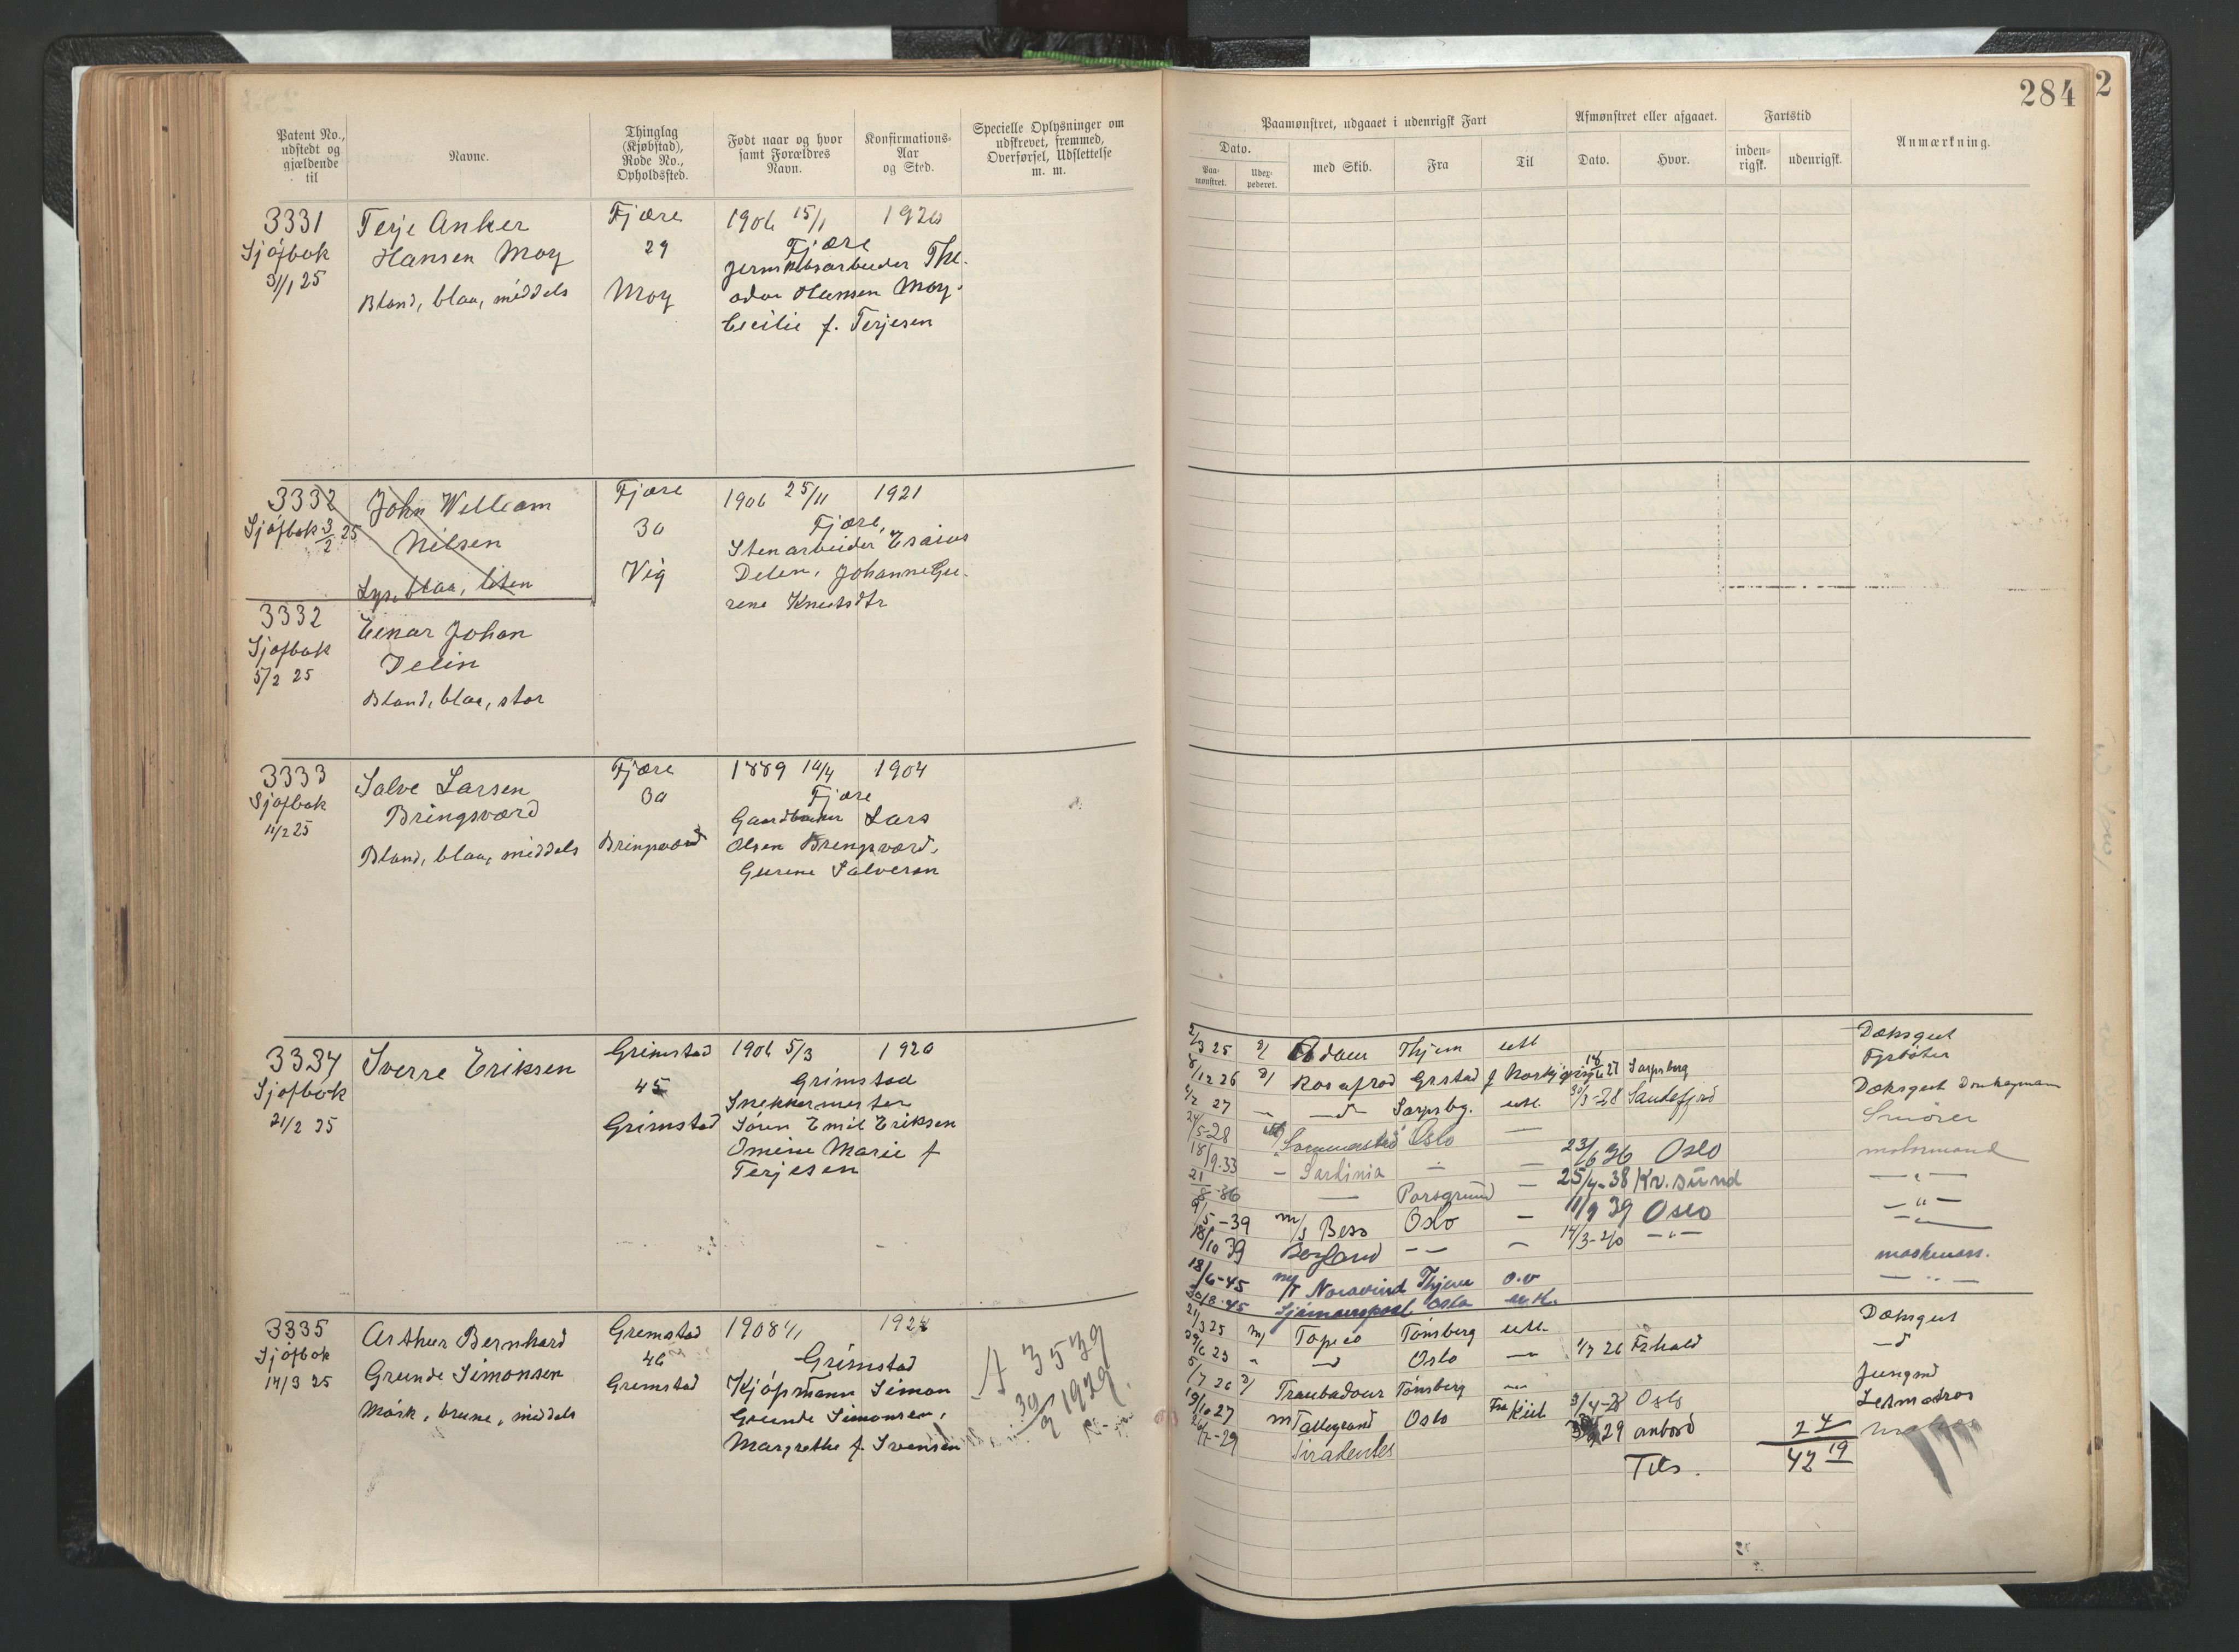 284
2
Patent No., udstedt og gjældende til
Navne.
Thinglag (Kjøbstad), Rode No., Opholdssted.
Født naar og hvor samt Forældres Navn.
Konfirmations-Aar og Sted.
Specielle Oplysninger om udskrevet, fremmed, Overførsel, Udslettelse m. m.
Paamønstret, udgaaet i udenrigsk Fart
Dato.
Paa-mønstret.
Udex-pederet.
med Skib.
Fra
Til
Afmønstret eller afgaaet.
Dato.
Hvor.
Fartstid
inden-rigsk.
udenrigsk.
Anmærkning.
3331
Sjøfbok
31/1 25
Terje Anker
Hansen Moy
Bland, blaa, middels
Fjære
29
Moy
1906 15/1
1920
Fjære
Jernskibsarbeider The-
odor Hansen Moy.
Cecilie f. Terjesen
3332
Sjøfbok 3/2 25
John William
Nilsen
Lys, blaa, liten
Fjære
30
Vig
1906 25/11
1921
Fjære,
Stenarbeider Esaias
Delin, Johanne Gu-
rene Knutsdtr
3332
Sjøfbok
5/2 25
Einar Johan
Delin
Bland, blaa, stor
3333
Sjøfbok
11/2 25
Salve Larsen
Bringsværd
Bland, blaa, middels
Fjære
30
Bringsværd
1889 14/4
1904
Fjære
Gaardbruker Lars
Olsen Bringsværd,
Gurine Salvesen
3334
Sjøfbok
21/2 25
Sverre Eriksen
Grimstad
45
Grimstad
1906 5/3
1920
Grimstad
Snekkermester
Søren Emil Eriksen
Omine Marie f
Terjesen
2/3 25 Adour Thjem utl Dæksgut
8/12 26 Rosafred Grstad 27 Sarpsberg Fyrbøter
27 —"— Sarpsbg. utl. 30/3-28 Sandefjord Dæksgut Donkeyman
24/5-28 Sommerstad Oslo — Smører
18/9-33 — Sardinia — — 23/6 36 Oslo motormand
21/8-36 — Porsgrund — 25/4-38 Kr. sund — " —
9/5-39 m/s Bess Oslo — 11/9 39 Oslo — " —
18/10 39 Bergland — — — 14/3-40 — " — — " —
18/6-45 m/T Noravind Thjem o.v maskinass.
30/8-45 Sjømannspool Oslo utl. — " —
3335
Sjøfbok
14/3 25
Arthur Bernhard
Grunde Simonsen
Mørk, brune, middels
Grimstad
46
Grimstad
1908
1924
Grimstad
Kjøpmann Simon
Grunde Simonsen,
Margrethe f. Svensen
A 3539
30/9 1929.
21/3 25 Topico Tønsberg utl. Dæksgut
29/6 25 —"— Oslo — 26 Frhald —"—
5/7 26 Troubadour Tønsberg — Jungmd
19/10 27 m Talleyrand Oslo Fra Kiel 3/4-28 Oslo Letmatros
26/7-29 Tiradentes 29 anbord 24
Tils. 42 19